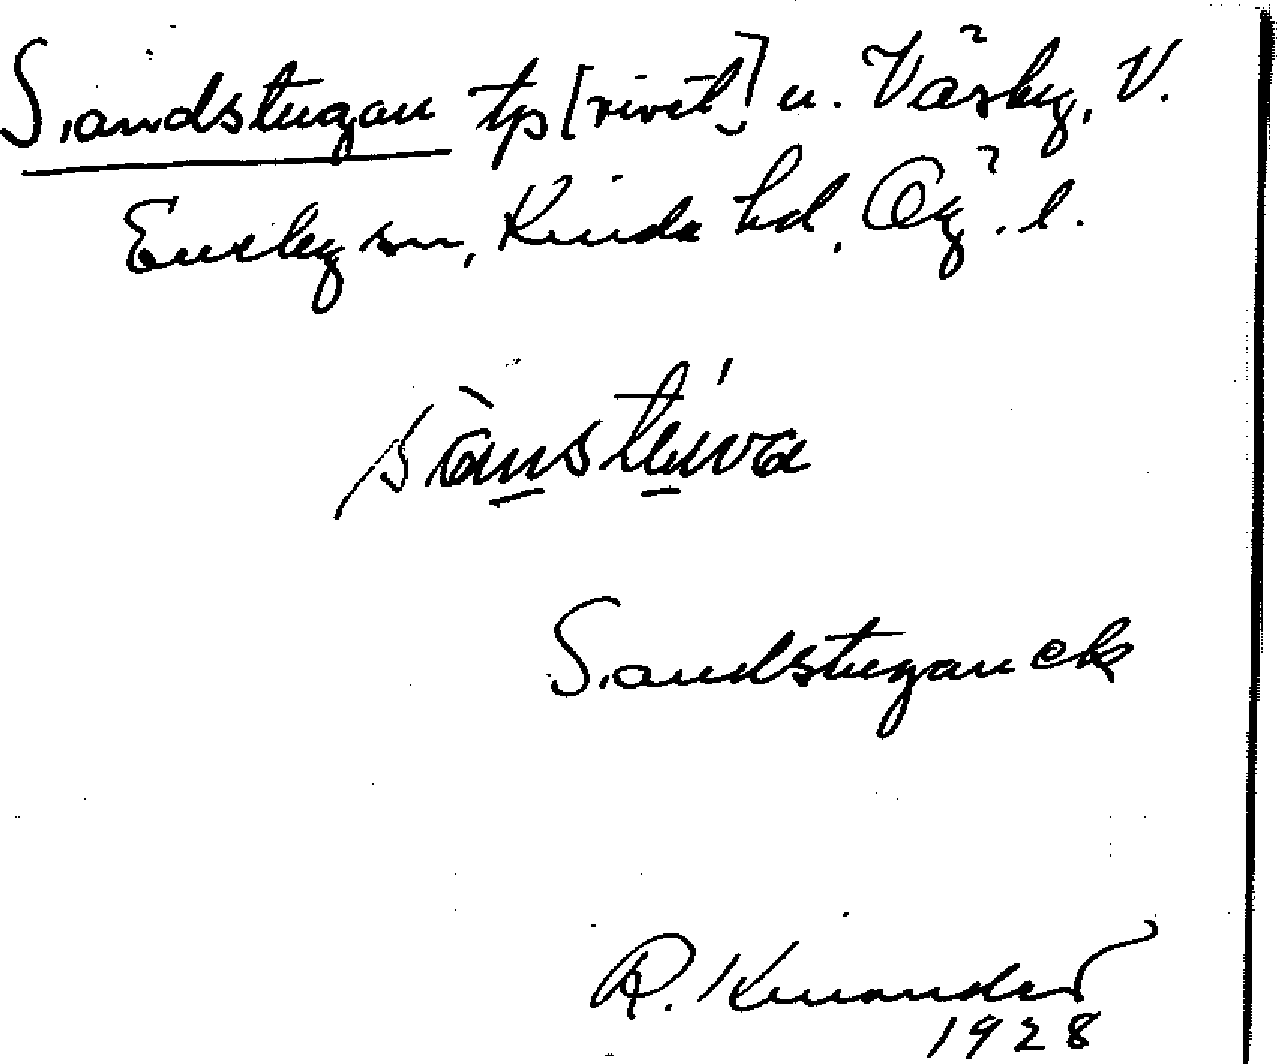 Sandstugan tp [rivet] u. Väsby, V.
Eneby sn, Kinda hd, Ög. l.
Sandstugan ek
R. Kinander
1928